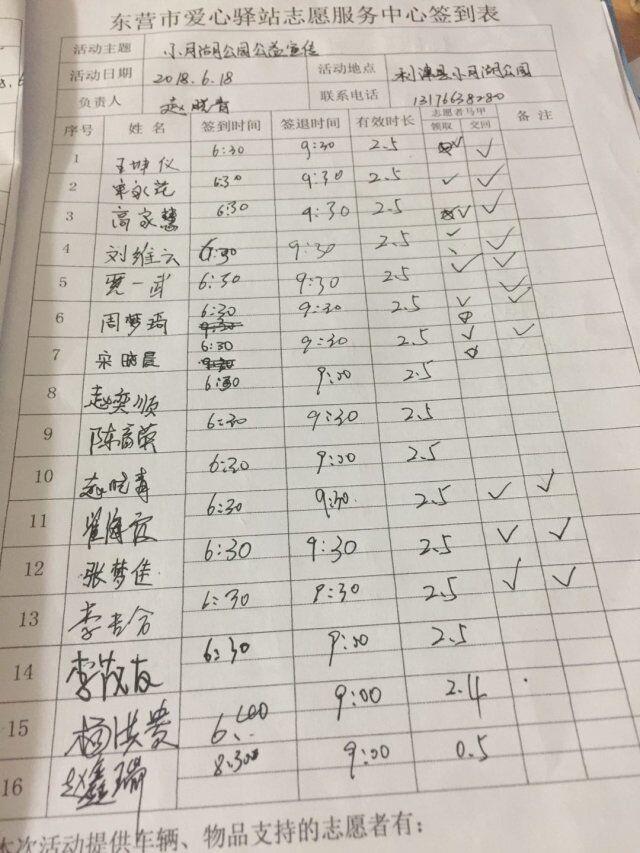 东营市爱心驿站志愿服务中心签到表
活动主题 小月湖公园公益宣传
活动日期 2018.6.18 活动地点 利津县小月湖公园
负责人 赵晓青 联系电话 13176638280
序号 姓名 签到时间 签退时间 有效时长 志愿者马甲 备注
领取 交回
1 王坤仪 6:30 9:30 2.5 ✓ ✓
2 6:30 9:30 2.5 ✓ ✓
3 高家慧 6:30 9:30 2.5 ✓ ✓
4 刘维云 6:30 9:30 2.5 ✓ ✓
5 贾一武 6:30 9:30 2.5 ✓ ✓
6 周梦琦 6:30 9:30 2.5 ✓ ✓
7 宋晓晨 6:30 9:30 2.5 ✓ ✓
8 赵奕顺 6:30 9:00 2.5
9 陈高荣 6:30 9:30 2.5
10 赵晓青 6:30 9:00 2.5
11 崔海霞 6:30 9:30 2.5 ✓ ✓
12 张梦佳 6:30 9:30 2.5 ✓ ✓
13 6:30 9:30 2.5 ✓ ✓
14 李茂友 6:30 9:00 2.5
15 杨洪贵 6:00 9:00 2.4
16 赵鑫瑞 8:30 9:00 0.5
本次活动提供车辆、物品支持的志愿者有: